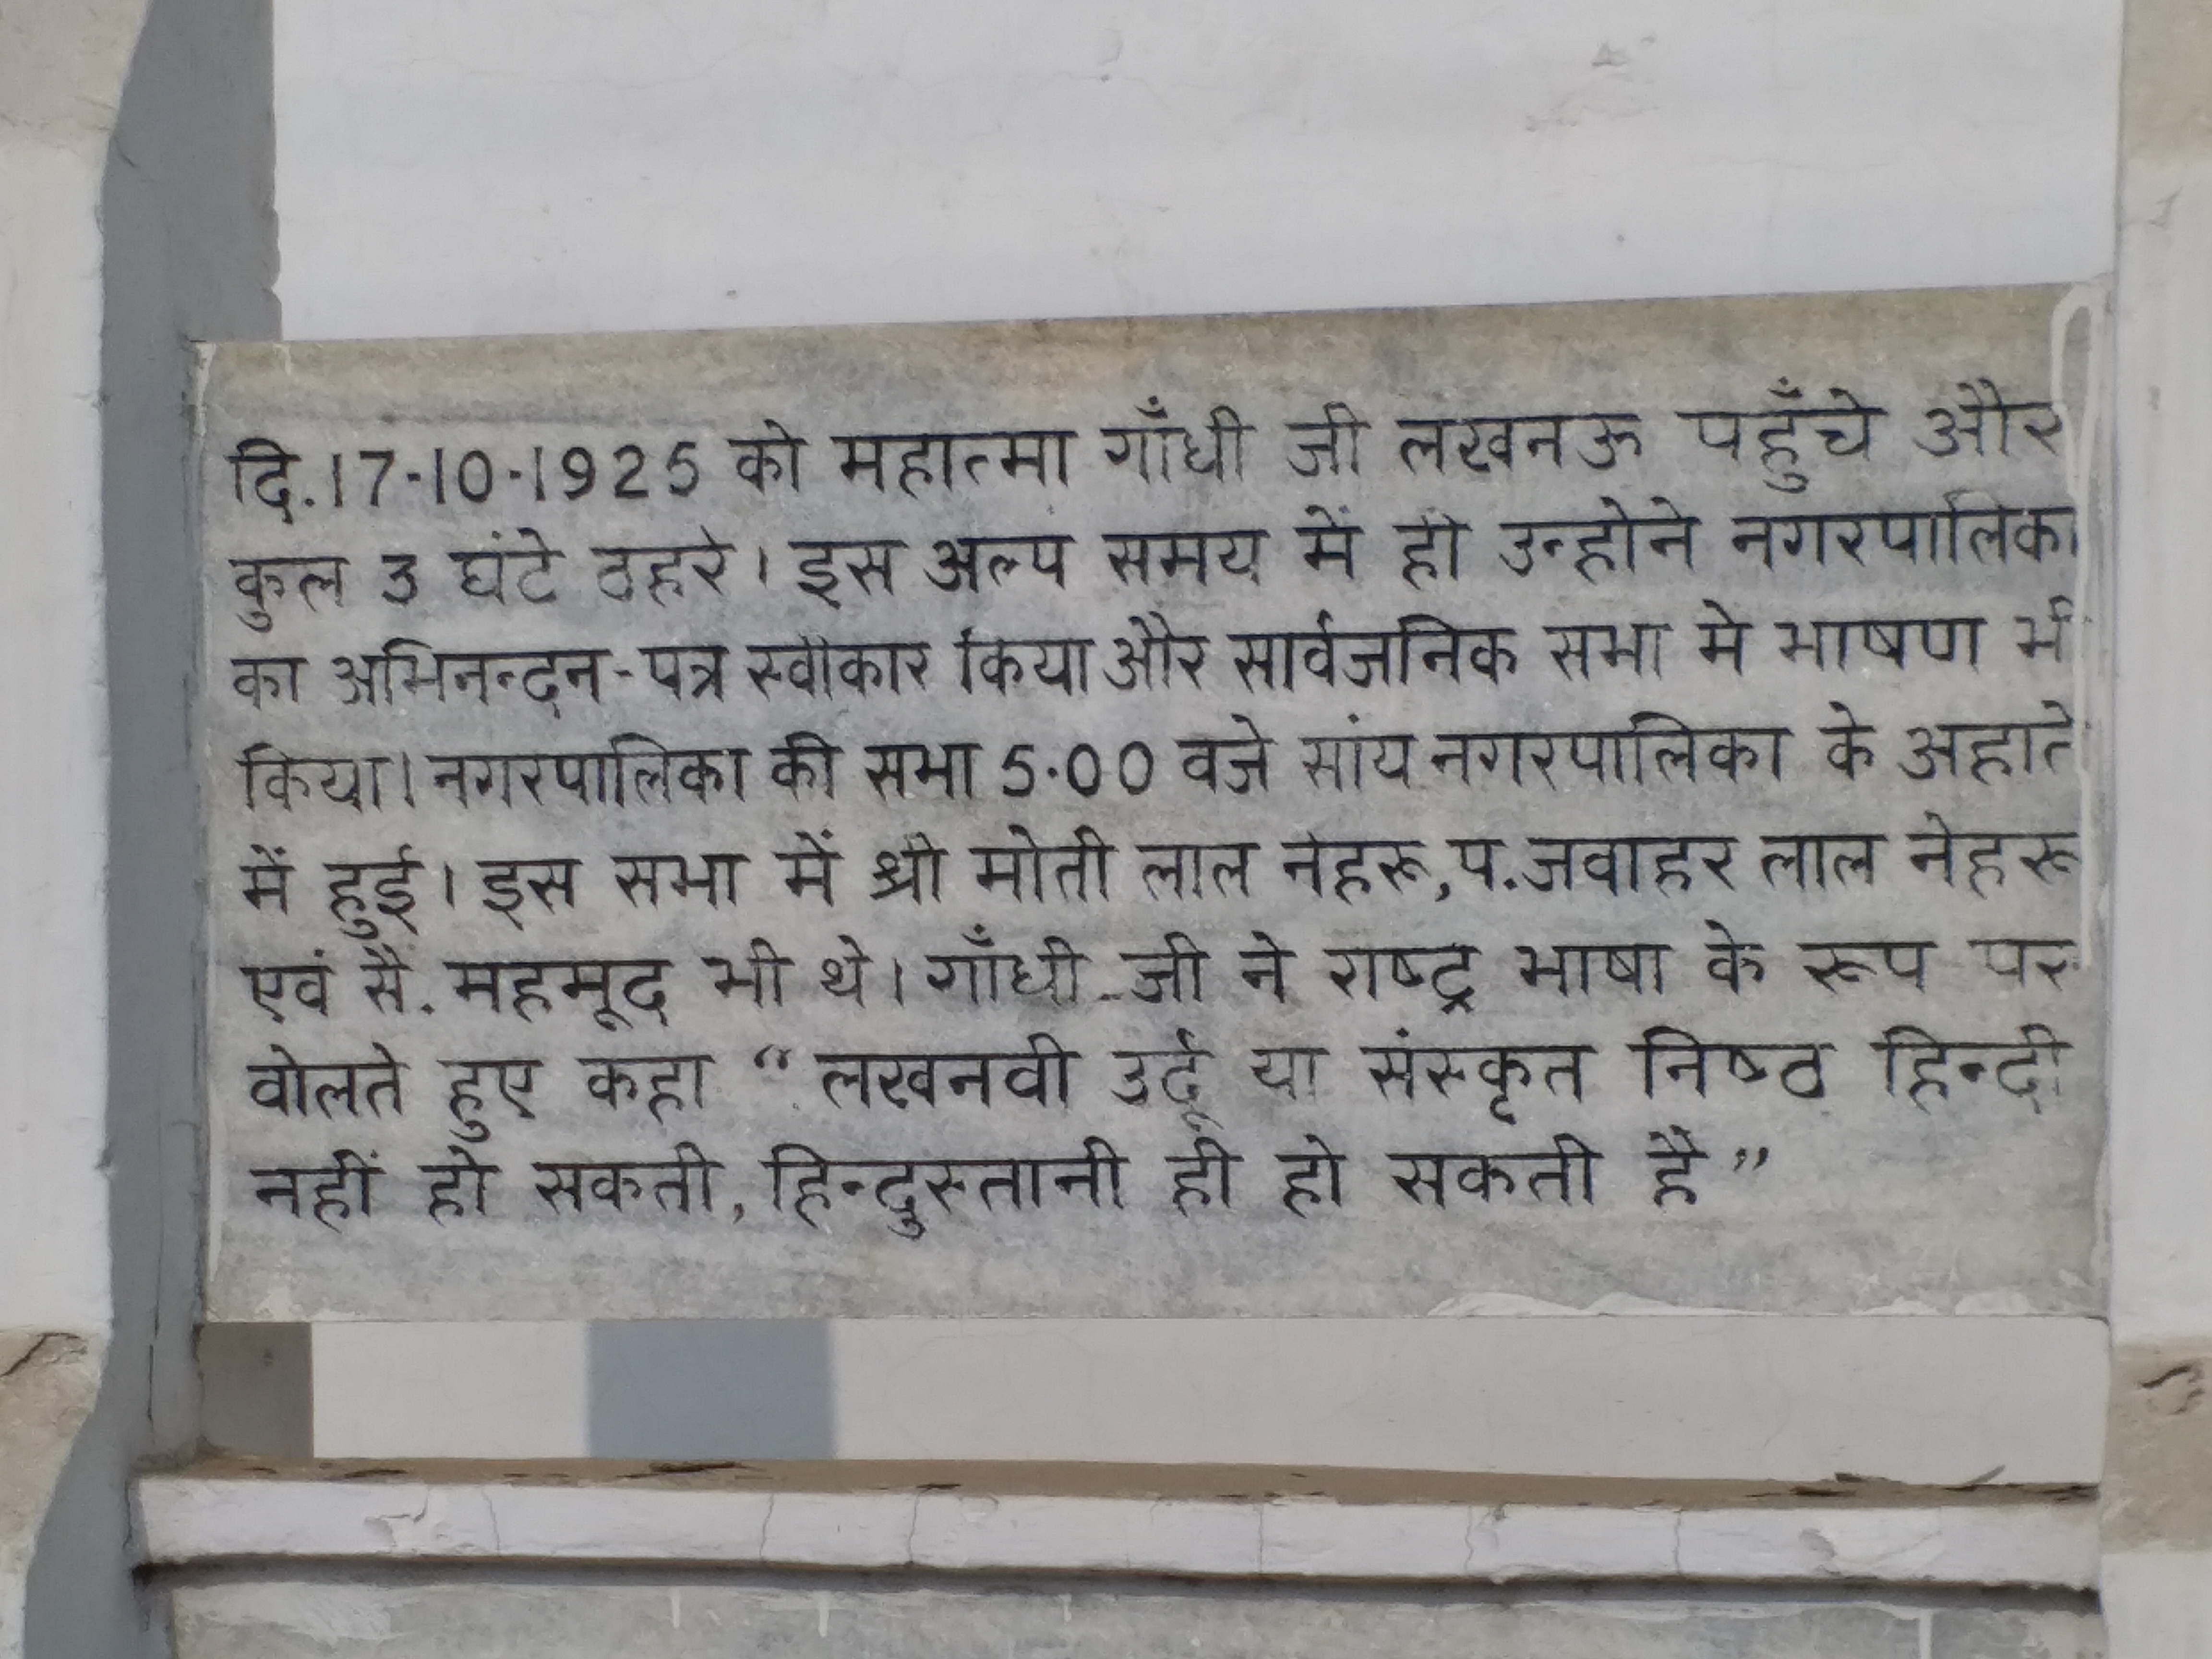 दि.17-10-1925 को महात्मा गाँधी जी लखनऊ पहुँचे और
कुल 3 घंटे ठहरे। इस अल्प समय में ही उन्होने नगरपालिका
का अभिनन्दन-पत्र स्वीकार किया और सार्वजनिक सभा मे भाषण भी
किया। नगरपालिका की सभा 5.00 वजे सांय नगरपालिका के अहाते
में हुई। इस सभा में श्री मोती लाल नेहरू,प.जवाहर लाल नेहरू
एवं सै. महमूद भी थे। गाँधी-जी ने राष्ट्र भाषा के रूप पर
वोलते हुए कहा “लखनवी उर्दू या संस्कृत निष्ठ हिन्दी
नहीं हो सकती, हिन्दुस्तानी ही हो सकती है”